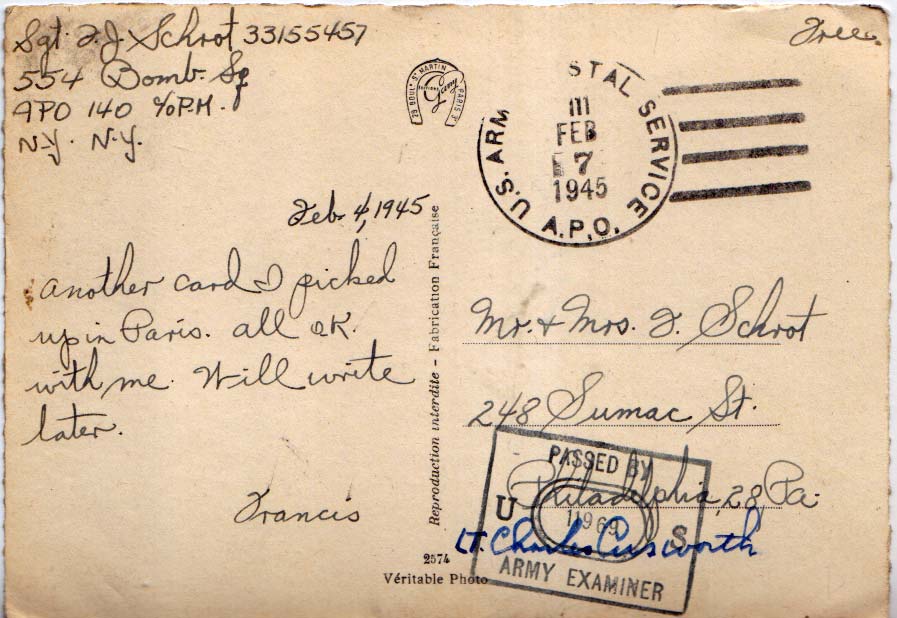 Sgt. F. J. Schrot 33155457
554 Bomb. Sq
APO 140 c/o P.M.
N.Y. N.Y.
Free
29 BOULD ST MARTIN PARIS 3e
EDITIONS
U.S. ARM STAL SERVICE
III
FEB
7
1945
A.P.O.
Feb. 4, 1945
Another card I picked
up in Paris. All OK.
with me. Will write
later.
Francis
Reproduction interdite - Fabrication Française
Mr. + Mrs. F. Schrot
248 Sumac St.
Philadelphia, 28 Pa.
PASSED BY
U S
11969
Lt. Charles
ARMY EXAMINER
2574
Véritable Photo